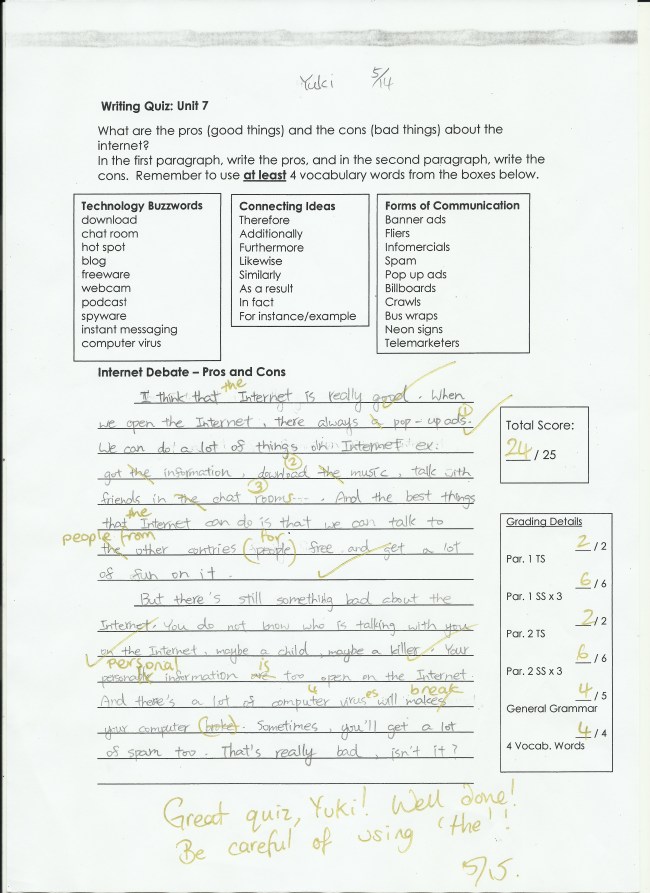 Yuki 5/14
Writing Quiz: Unit 7
What are the pros (good things) and the cons (bad things) about the
internet?
In the first paragraph, write the pros, and in the second paragraph, write the
cons. Remember to use at least 4 vocabulary words from the boxes below.
Technology Buzzwords
download
chat room
hot spot
blog
freeware
webcam
podcast
spyware
instant messaging
computer virus
Connecting Ideas
Therefore
Additionally
Furthermore
Likewise
Similarly
As a result
In fact
For instance/example
Forms of Communication
Banner ads
Fliers
Infomercials
Spam
Pop up ads
Billboards
Crawls
Bus wraps
Neon signs
Telemarketers
Internet Debate – Pros and Cons
the
I think that Internet is really good. When
1
we open the Internet, there always a pop-up ads.
We can do a lot of things on Internet ex:
2
got the information, download the music, talk with
3
friends in the chat rooms.... And the best things
the
that Internet can do is that we can talk to
people from for
the other contries (people) free and get a lot
of fun on it.
But there's still something bad about the
Internet. You do not know who is talking with you
on the Internet, maybe a child, maybe a killer. Your
personal is
information are too open on the Internet.
4 es break
And there's a lot of computer virus will makes
your computer (broke). Sometimes, you'll get a lot
of spam too. That's really bad, isn't it?
Total Score:
24 / 25
Grading Details
2 / 2
Par. 1 TS
6 / 6
Par. 1 SS x 3
2 / 2
Par. 2 TS
6 / 6
Par. 2 SS x 3
4 / 5
General Grammar
4 / 4
4 Vocab. Words
Great quiz, Yuki! Well done!
Be careful of using 'the'!
5/15.